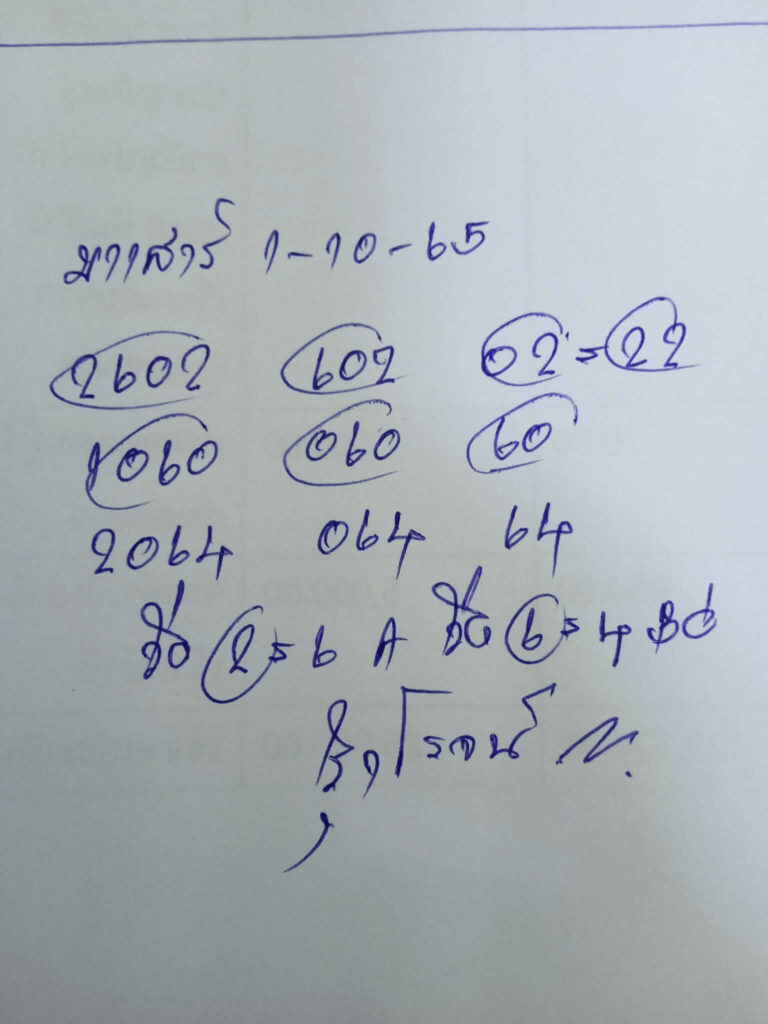 มาเสาร์ 1-10-65
2602 602 02=22
1060 060 60
2064 064 64
2=6 A 6=4
โรจน์ N.